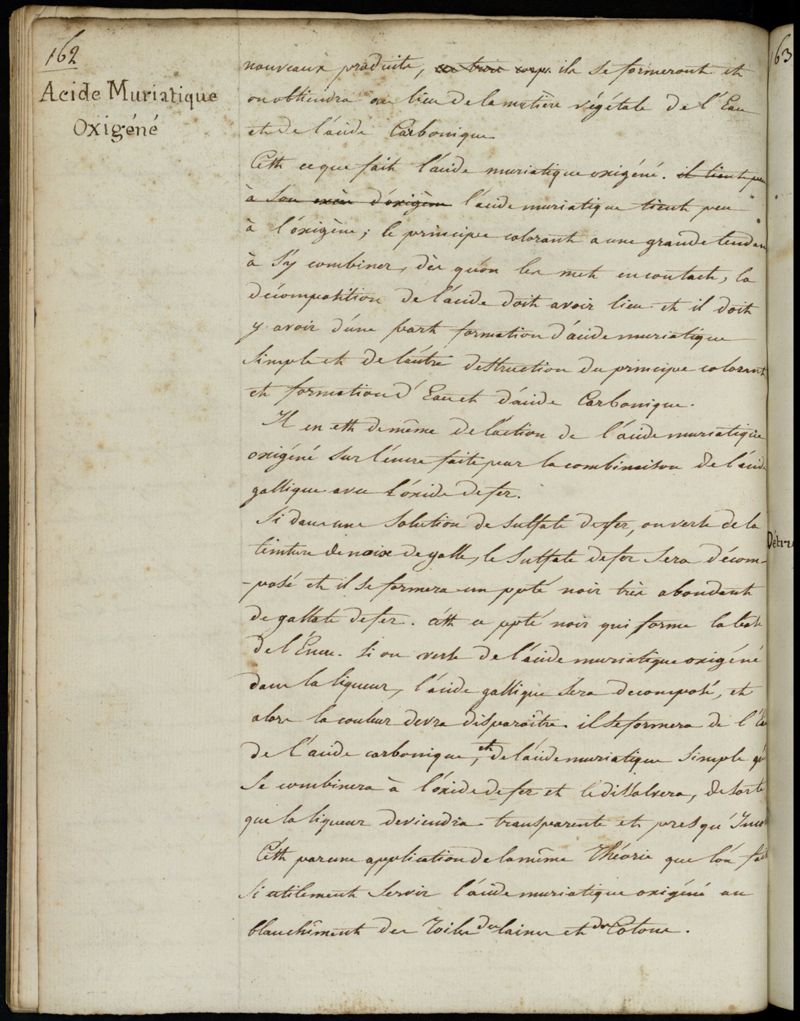 162
Acide Muriatique
Oxigéné
nouveaux produits, ils se formeront et
on obtiendra au lieu de la matière végétale de l'Eau
et de l'acide Carbonique
C'est ce que fait l'acide muriatique oxigéné. il tient peu
à son excès d'oxigène l'acide muriatique tient peu
à l'oxigène; le principe colorant a une grande tendan
à s'y combiner, dès qu'on les met en contact, la
décomposition de l'acide doit avoir lieu et il doit
y avoir d'une part formation d'acide muriatique
simple et de l'autre destruction du principe colorant
et formation d'Eau et d'acide Carbonique.
Il en est de même de l'action de l'acide muriatique
oxigéné sur l'encre faite par la combinaison de l'acid
gallique avec l'oxide de fer.
Si dans une Solution de Sulfate de fer, on verse de la
teinture de noix de galle, le Sulfate de fer sera décom-
-posé et il se formera un ppté noir très abondant
de gallate de fer. c'est ce ppté noir qui forme la base
de l'Encre. Si on verse de l'acide muriatique oxigéné
dans la liqueur, l'acide gallique sera decomposé, et
alors la couleur devra disparaître. il se formera de l'E
de l'acide carbonique, et de l'acide muriatique simple qui
se combinera à l'oxide de fer et le dissolvera, de sorte
que la liqueur deviendra transparente et presqu'Inco
C'est par une application de la même Théorie que l'on fai
si utilement servir l'acide muriatique oxigéné au
blanchîment des Toiles des laines et des Cotons.
163
Détru